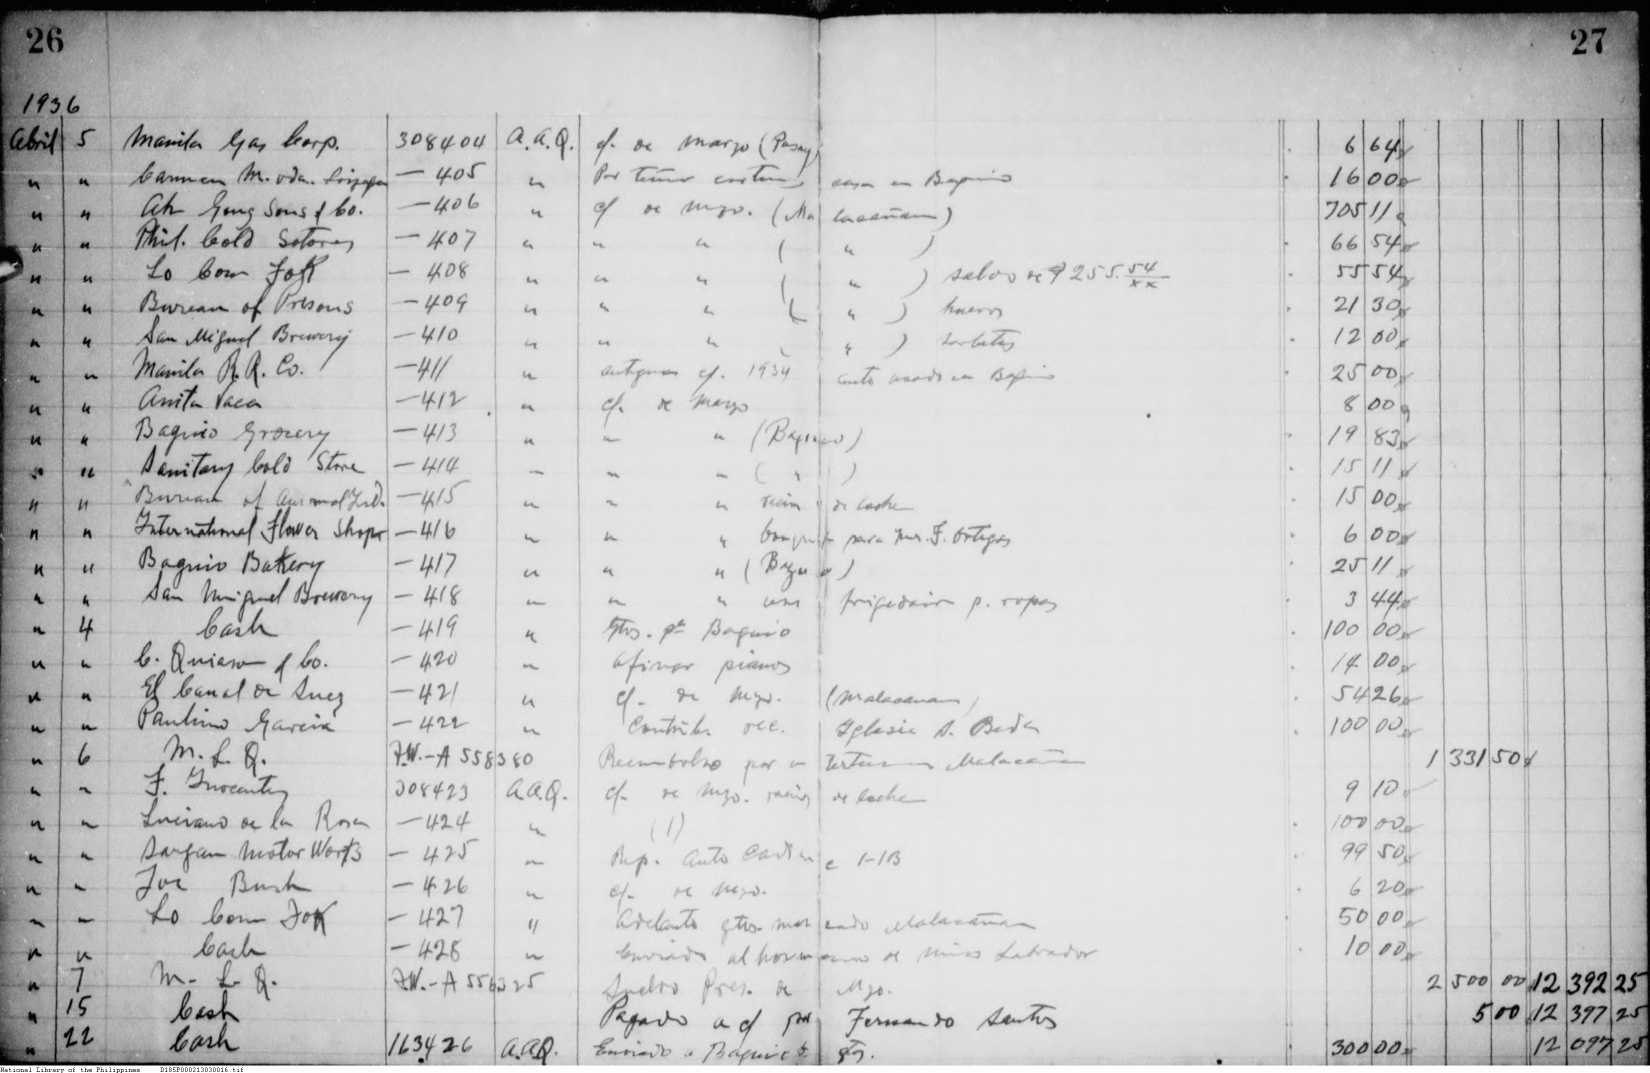 26
27
1936
Abril 5 Manila Gas Corp. 308404 A.A.Q. cf. de marzo (Pasay) 6 64
" " Carmen M. vda. — 405 " Por casa en Baguio 16 00
" " Ah Gong Sons & Co. — 406 " cf de mzo. (Malacañan) 705 11
" " Phil. Cold Stores — 407 " " " ( " ) 66 54
" " Lo Com Fok — 408 " " " ( " ) saldo de ₱255.54/xx 55 54
" " Bureau of Prisons — 409 " " " ( " ) huevos 21 30
" " San Miguel Brewery — 410 " " " " ) sorbetes 12 00
" " Manila R.R. Co. — 411 " antigua cf. 1934 auto usado en Baguio 25 00
" " Anita Vaca — 412 " cf. de marzo 8 00
" " Baguio Grocery — 413 " " " (Baguio) 19 83
" " Sanitary Cold Store — 414 — " " ( " ) 15 11
" " Bureau of Animal Ind. — 415 " " " de leche 15 00
" " International Flower Shop — 416 " " " para Mrs. F. Ortigas 6 00
" " Baguio Bakery — 417 " " " (Baguio) 25 11
" " San Miguel Brewery — 418 — " " frigidaire p. ropas 3 44
" 4 Cash — 419 " Gtos. pa Baguio 100 00
" " C. Quiason & Co. — 420 " afinar pianos 14 00
" " El Canal de Suez — 421 " cf. de mzo. (Malacañan) 54 26
" " Paulino Garcia — 422 " Contrib. rec. Iglesia S. Beda 100 00
" 6 M. L. Q. P.W.-A 558380 Reembolso por en Malacañan 1 331 50
" " F. Inocentes 308423 A.A.Q. cf. de mzo. de leche 9 10
" " Luciano de la Rosa — 424 " (1) 100 00
" " Sargan Motor Works — 425 — Rep. auto 1-1B 99 50
" " Joe Bush — 426 " cf. de mzo. 6 20
" " Lo Com Fok — 427 " Adelanto gtos. mercado Malacañan 50 00
" " Cash — 428 " Enviado al hermano de Labrador 10 00
" 7 M. L. Q. P.W.-A 556325 Sueldo Pres. de Mzo. 2 500 00 12 392 25
" 15 Cash Pagado a cf por Fernando Santos 5 00 12 397 25
" 22 Cash 163426 A.A.Q. Enviado a Baguio 300 00 12 097 25
National Library of the Philippines D185P000213030016.tif